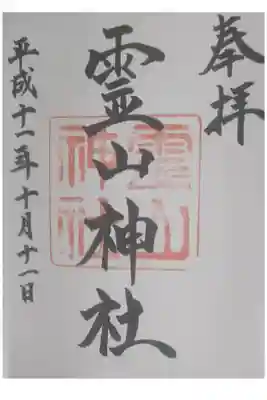 奉拝
霊山神社
霊山神社
平成十一年十月十一日